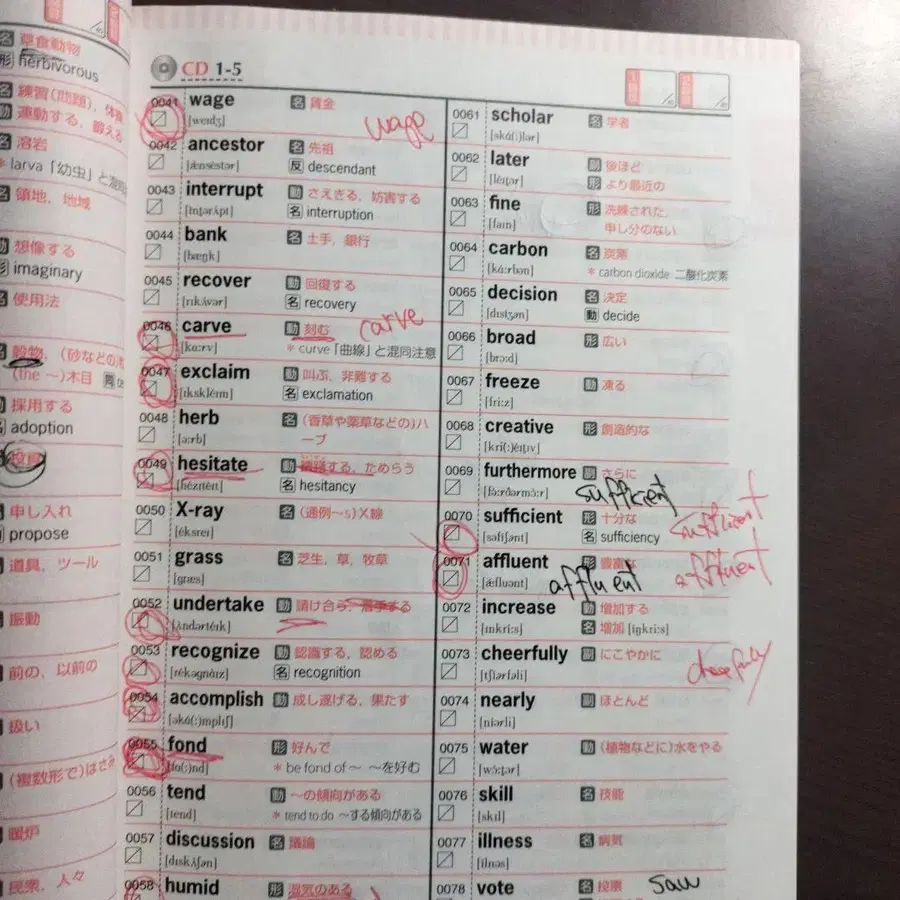 名 草食動物
形 herbivorous
名 練習(問題), 体
動 運動する, 鍛える
名 溶岩
* larva「幼虫」と混同
名 領地, 地域
動 想像する
形 imaginary
名 使用法
名 穀物, (砂などの)
(the ～)木目 同
採用する
adoption
申し入れ
propose
道具, ツール
振動
前の, 以前の
扱い
(複数形で)はさみ
暖炉
民衆, 人々
CD 1-5
0041 wage 名 賃金
[weɪdʒ]
wage
0042 ancestor 名 先祖
[ǽnsèstər] 反 descendant
0043 interrupt 動 さえぎる, 妨害する
[ìntərʌ́pt] 名 interruption
0044 bank 名 土手, 銀行
[bæŋk]
0045 recover 動 回復する
[rɪkʌ́vər] 名 recovery
0046 carve 動 刻む
[kɑːrv] * curve「曲線」と混同注意
carve
0047 exclaim 動 叫ぶ, 非難する
[ɪkskléɪm] 名 exclamation
0048 herb 名 (香草や薬草などの)ハーブ
[əːrb]
0049 hesitate 動 する, ためらう
[hézɪtèɪt] 名 hesitancy
0050 X-ray 名 (通例～s)X線
[éksreɪ]
0051 grass 名 芝生, 草, 牧草
[græs]
0052 undertake 動 請け合う, 着手する
[ʌ̀ndərtéɪk]
0053 recognize 動 認識する, 認める
[rékəgnàɪz] 名 recognition
0054 accomplish 動 成し遂げる, 果たす
[əkɑ́(ː)mplɪʃ]
0055 fond 形 好んで
[fɑ(ː)nd] * be fond of ～ ～を好む
0056 tend 動 ～の傾向がある
[tend] * tend to do ～する傾向がある
0057 discussion 名 議論
[dɪskʌ́ʃən]
0058 humid 形 湿気のある
0061 scholar 名 学者
[skɑ́(ː)lər]
0062 later 副 後ほど
[léɪtər] 形 より最近の
0063 fine 形 洗練された,
[faɪn] 申し分のない
0064 carbon 名 炭素
[kɑ́ːrbən] * carbon dioxide 二酸化炭素
0065 decision 名 決定
[dɪsíʒən] 動 decide
0066 broad 形 広い
[brɔːd]
0067 freeze 動 凍る
[friːz]
0068 creative 形 創造的な
[kri(ː)éɪtɪv]
0069 furthermore 副 さらに
[fə́ːrðərmɔ̀ːr]
sufficient
0070 sufficient 形 十分な
[səfíʃənt] 名 sufficiency
sufficient
0071 affluent 形 豊富な
[ǽfluənt]
affluent
affluent
0072 increase 動 増加する
[ɪnkríːs] 名 増加 [íŋkriːs]
0073 cheerfully 副 にこやかに
[tʃíərfəli]
0074 nearly 副 ほとんど
[níərli]
0075 water 動 (植物などに)水をやる
[wɔ́ːtər]
0076 skill 名 技能
[skɪl]
0077 illness 名 病気
[ílnəs]
0078 vote 名 投票
saw